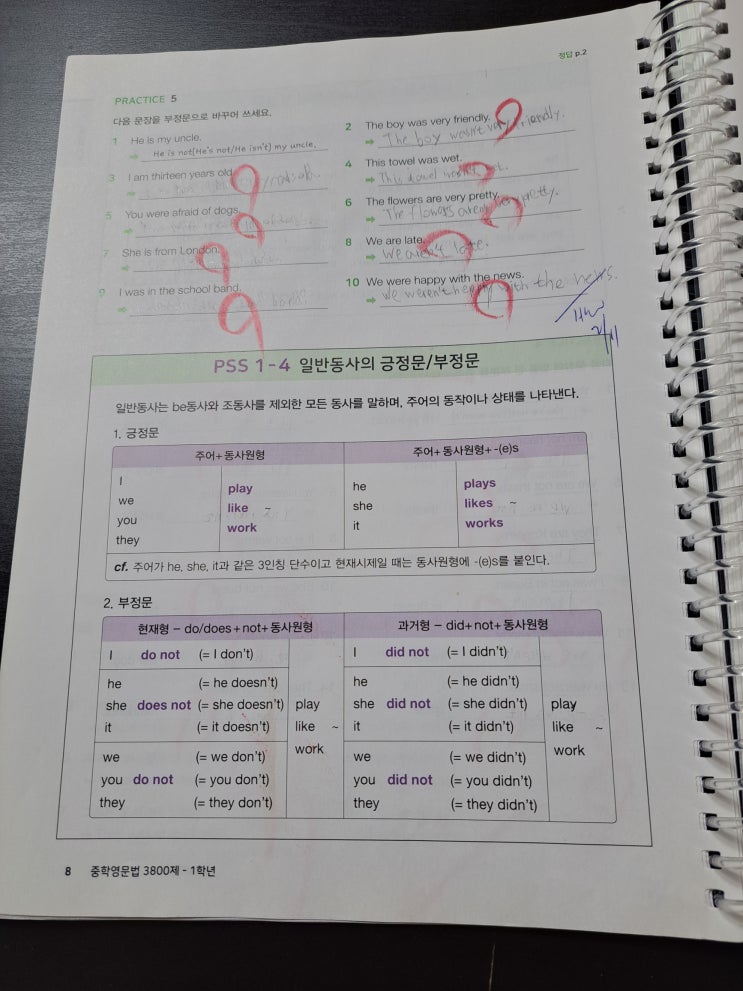 정답 p.2
PRACTICE 5
다음 문장을 부정문으로 바꾸어 쓰세요.
1 He is my uncle.
→ He is not(He's not/He isn't) my uncle.
2 The boy was very friendly.
→ The boy wasn't very friendly.
3 I am thirteen years old.
→
4 This towel was wet.
→ This towel
5 You were afraid of dogs.
→
6 The flowers are very pretty.
→ The flowers aren't very pretty.
7 She is from London.
→
8 We are late.
→ We aren't late.
9 I was in the school band.
→
10 We were happy with the news.
→ We weren't happy with the news.
PSS 1-4 일반동사의 긍정문/부정문
일반동사는 be동사와 조동사를 제외한 모든 동사를 말하며, 주어의 동작이나 상태를 나타낸다.
1. 긍정문
주어+동사원형 주어+동사원형+-(e)s
I
we
you
they
play
like ~
work
he
she
it
plays
likes ~
works
cf. 주어가 he, she, it과 같은 3인칭 단수이고 현재시제일 때는 동사원형에 -(e)s를 붙인다.
2. 부정문
현재형 – do/does+not+동사원형 과거형 – did+not+동사원형
I do not (= I don't) I did not (= I didn't)
he (= he doesn't) he (= he didn't)
she does not (= she doesn't) play she did not (= she didn't) play
it (= it doesn't) like ~ it (= it didn't) like ~
we (= we don't) work we (= we didn't) work
you do not (= you don't) you did not (= you didn't)
they (= they don't) they (= they didn't)
8 중학영문법 3800제 - 1학년